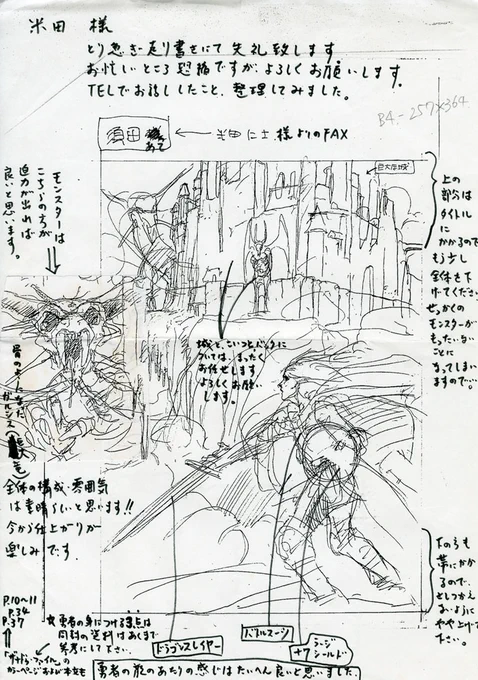 米田 様
とり急ぎ走り書きにて失礼致します
お忙しいところ恐縮ですが、よろしくお願いします。
TELでお話ししたこと、整理してみました。
B4.-257×364
須田
あて
←米田仁士様よりのFAX
巨大な城
モンスターは
こちらの方が
迫力が出れば
良いと思います。
上の
部分は
タイトル
にかかるので
もう少し
全体を下
げてください
せっかくの
モンスターが
もったいない
ことに
なってしまい
ますので…
城と、こいつとバックに
ついては、まったく
お任せします
よろしくお願い
します。
全体の構成・雰囲気
は素晴らしいと思います!!
今から仕上がりが
楽しみです.
下の方も
帯にかか
るので、
おように
やや上げて
下さい。
P.10~11
P.34
P.37
勇者の身につける
同封の資料はあくまで
参考にして下さい.
ドラゴンスレイヤー
バトルスーツ
+7 ラージ
シールド
勇者の衣のあたりの感じはたいへん良いと思いました.